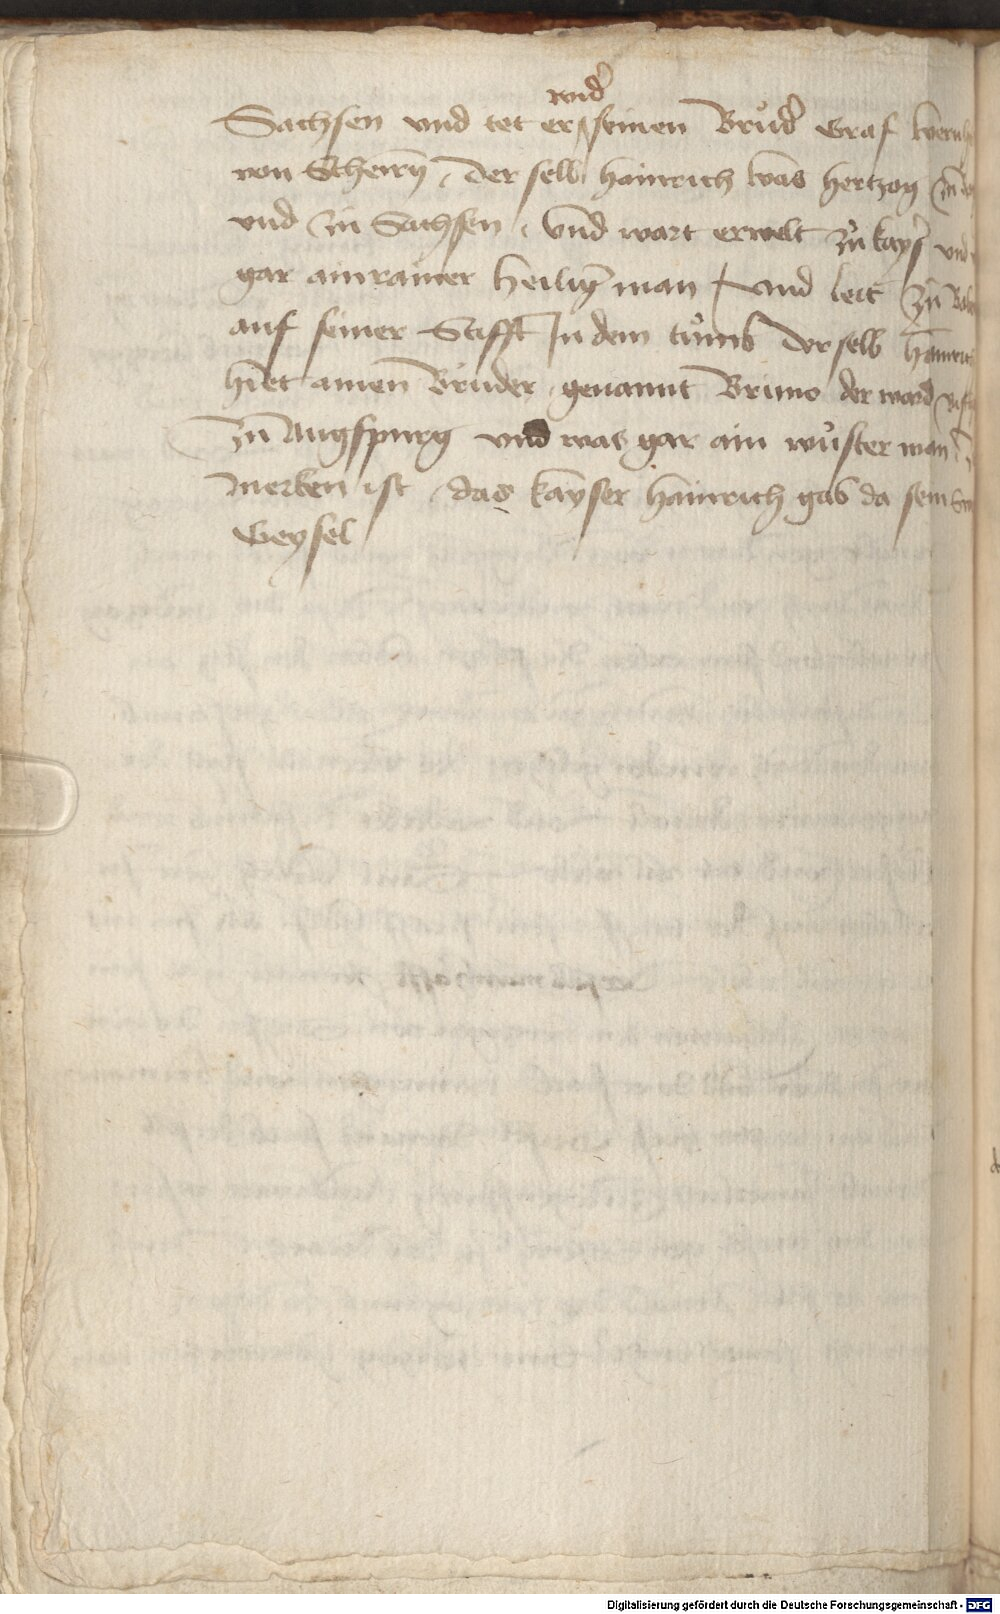 wider
Sachsen vnd tet er seinen Brůder Graf
von Scheirn / Der selb hainrich was hertzog zu
vnd zu Sachsen / Vnd wart erwelt zů kayser vnd
gar ain rainer heilig man / Vnd leit zů
auf seiner Stifft In dem tůmb Der selb hainrich
hiet ainen Bruder genannt Bruno der ward
zu Augspurg vnd was gar ain wůster man
merken ist / das kayser hainrich gab da sein
Geysel
Digitalisierung gefördert durch die Deutsche Forschungsgemeinschaft - DFG